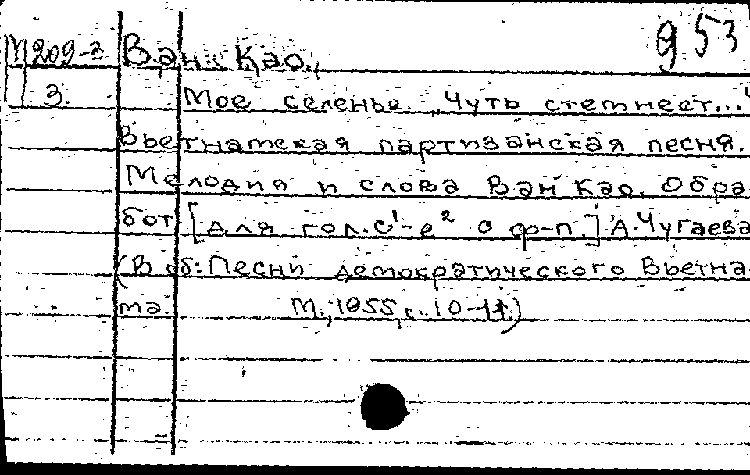 953
М209-3 Ван Као.
П 3. Мое селенье. „Чуть стемнеет..."
Вьетнамская партизанская песня.
Мелодия и слова Ван Као. Обра
бот. [для гол. c¹-e² с ф-п.] А. Чугаева
(В сб: Песни демократического Вьетна-
ма. М., 1955, с. 10-11.)